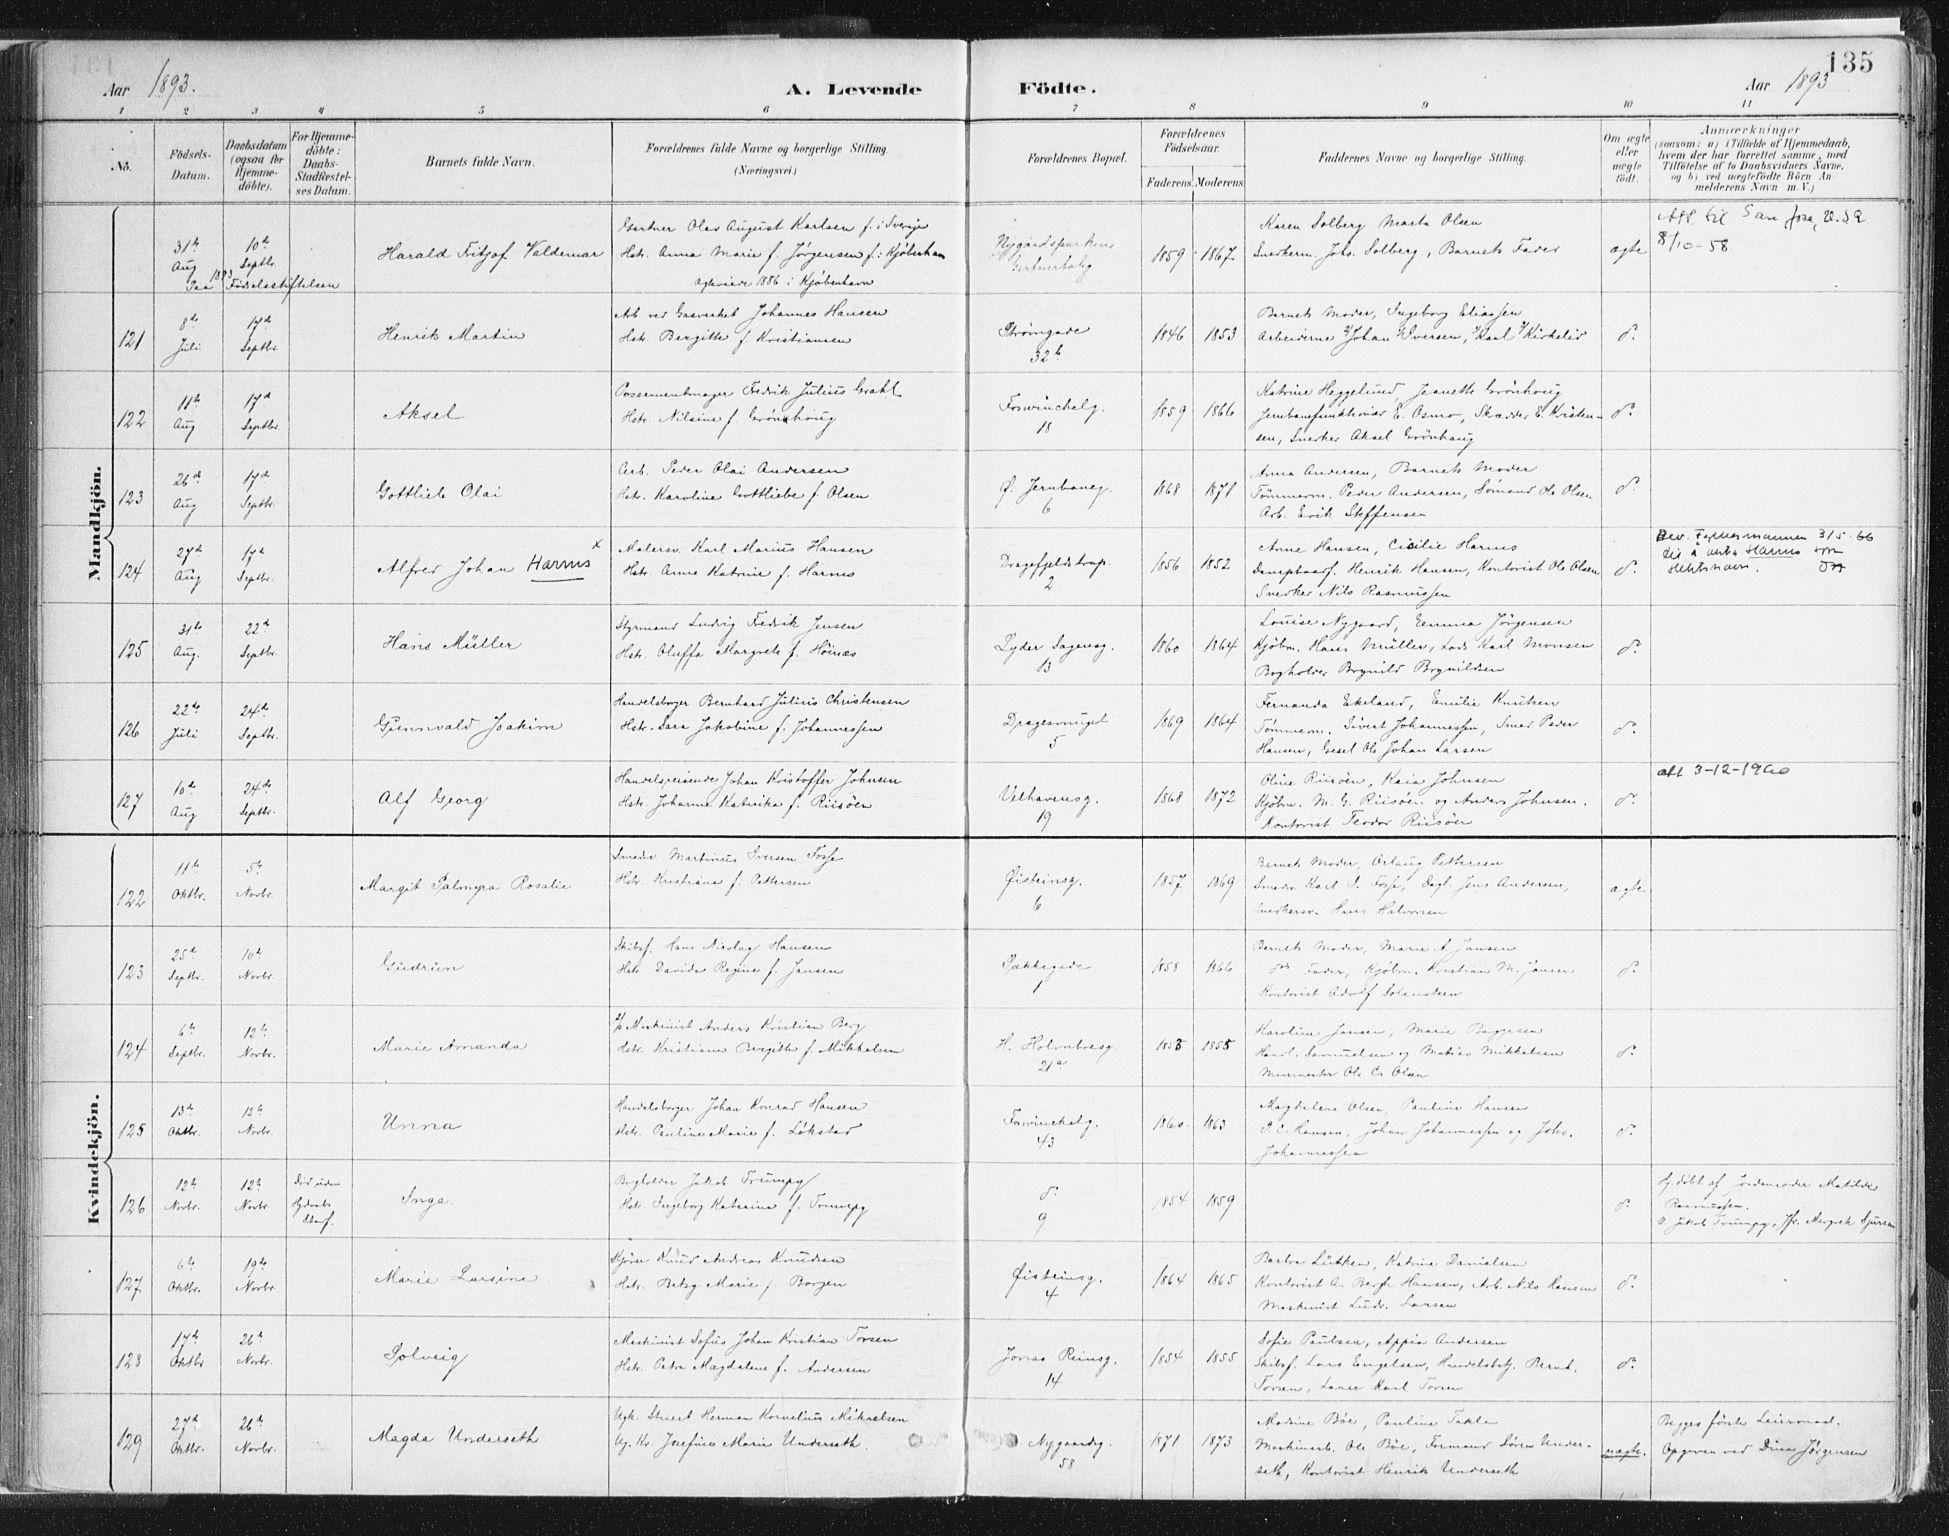 135
Aar 1893. A. Levende Födte. Aar 1893
1 2 3 4 5 6 7 8 9 10 11
No.
Födsels-Datum.
Daabsdatum (ogsaa for Hjemme-döbte).
For Hjemme-döbte: Daabs-Stadfæstel-ses Datum.
Barnets fulde Navn.
Forældrenes fulde Navne og borgerlige Stilling. (Næringsvei.)
Forældrenes Bopæl.
Forældrenes Födselsaar.
Faderens. Moderens.
Faddernes Navne og borgerlige Stilling.
Om ægte eller uægte födt.
Anmærkninger
(saasom: a) i Tilfælde af Hjemmedaab,
hvem der har forrettet samme, med
Tilföielse af to Daabsvidners Navne,
og b) ved uægtefödte Börn An-
melderens Navn m. V.)
Mandkjön.
31te Aug 1893 10de Septbr.
Paa Födselsstiftelsen
Harald Fritjof Valdemar
Gartner Olav August Karlsen f. i Sverige
Hstr. Anna Marie f. Jørgensen f. i Kjøbenhavn
Ægteviede 1886 i Kjøbenhavn
Nygårdsparken Gartnerbolig
1859 1867
Karen Solberg Marta Olsen
Snedkerm. Johs. Solberg, Barnets Fader
ægte
8/10-58
121 8de Juli 17de Septbr. Henrik Martin
Arb. ved Gasverket Johannes Hansen
Hstr. Bergitte f. Kristiansen
Strömgade 32b
1846 1853
Barnets Moder, Ingeborg Eliassen
Arbeiderne Johan Iversen, Karl Kirkelid
do
122 11te Aug 17de Septbr. Aksel
Possementmager Fredrik Julius Grahl
Hstr. Nilsine f. Grönhoug
Forwinchelg. 18
1859 1866
Katrine Heggelund, Jeanette Grönhoug
Jernbanefunktionær E. Osmo, Skrædder E. Kristen-
sen, Snerker Aksel Grönhaug
do
123 26de Aug 17de Septbr. Gottlieb Olai
Arb. Peder Olai Andersen
Hstr. Karoline Gottliebe f. Olsen
Ø. Jernbaneg. 6
1868 1871
Anna Andersen, Barnets Moder
Tömmerm. Peder Andersen, Sömand Ole Olsen
Arb. Erik Steffensen
do
124 27de Aug 17de Septbr. Alfred Johan Harms x
Malersv. Karl Marius Hansen
Hstr. Anna Katrine f. Harms
Dragefjeldstrap. 2
1856 1852
Anne Hansen, Cicilie Harms
Dampbaadf. Henrik Hansen, Kontorist Ole Olsen
Snerker Nils Rasmussen
do
Bev. Fylkesmannen 3/5-66
til å anta Harms som
slektsnavn.
125 31te Aug. 22de Septbr. Hans Müller
Styrmand Ludvig Fredrik Jensen
Hstr. Oluffa Margrete f. Höinæs
Lyder Sagensg. 13
1860 1864
Louise Nygaard, Emma Jørgensen
Kjøbm. Hans Müller, Lods Karl Monsen
Bogholder Brynild Brynildsen
do
126 22de Juli 24de Septbr. Gunnvald Joakim
Handelsborger Bernhard Julius Christensen
Hstr. Sara Jakobine f. Johannessen
Dragesmuget 5
1869 1864
Fernanda Ekeland, Emilie Knutsen
Tömmerm. Sivert Johannessen, Smed Peder
Hansen, Gesel Ole Johan Larsen
do
127 10de Aug 24de Septbr. Alf Georg
Handelsreisende Johan Kristoffer Johnsen
Hstr. Johanna Katrika f. Riisöen
Velhavensg. 19
1868 1872
Oline Riisöen, Kaia Johnsen
Kjöbm. M. G. Riisöen og Anders Johnsen.
Kontorist Teodor Riisöen
do
att 3-12-1960
Kvindekjön.
122 11te Oktbr. 5te Novbr. Margit Palmyra Rosalie
Smedsv. Martinus Iversen Fosse
Hstr. Kristiane f. Pettersen
Øisteinsg. 6
1857 1869
Barnets Moder, Aslaug Pettersen
Smedsv. Karl I. Fosse, Dagl. Jens Andersen,
Snedkersv. Hans Halvorsen
ægte
123 25de Septbr. 10de Novbr. Gudrun
Skibsf. Hans Nicolay Hansen
Hstr. Davida Regine f. Jansen
Sækkegade 1
1858 1866
Barnets Moder, Marie A. Jansen
do Fader, Kjöbm. Kristian M. Jansen
Kontorist Adolf Solensteen
do
124 6te Septbr. 12te Novbr. Marie Amanda
Maskinist Anders Kristian Berg
Hstr. Kristiane Bergitte f. Mikkelsen
H. Holmboesg. 21a
1855 1855
Karoline Jansen, Marie Baggesen
Handl. Samuelsen og Matias Mikkelsen
Murmester Ole Cs Olsen
do
125 13de Oktbr. 12te Novbr. Unna
Handelsborger Johan Konrad Hansen
Hstr. Pauline Marie f. Lökstad
Forwinchelg. 43
1860 1863
Magdalene Olsen, Pauline Hansen
P. C. Hansen, Johan Johannessen og Johs.
Johannessen
do
126 12te Novbr. 12te Novbr. Död uden Hjdaabs Stadf. Inga
Bogholder Jakob Trumpy
Hstr. Ingeborg Katarina f. Trumpy
do 9
1854 1859
do
Hj. döbt af Jordemoder Matilde
Rasmussen.
V. Jakob Trumpy, Jfr. Margrete Sjursen
127 6te Oktbr. 19de Novbr. Marie Lursine
Kjörer Knud Andreas Knudsen
Hstr. Betzy Marie f. Borgen
Øisteinsg. 4
1864 1865
Barbra Lütken, Katrine Danielsen
Kontorist A. Bergh Hansen, Arb. Nils Hansen
Maskinist Ludv. Larsen
do
128 17de Oktbr 26de Novbr. Solveig
Maskinist Sofus Johan Kristian Torsen
Hstr. Petra Magdalene f. Andersen
Jonas Reinsg. 14
1854 1855
Sofie Paulsen, Appia Andersen
Skibsf. Lars Engelsen, Handelsbetj. Bernt.
Torsen, Lærer Karl Torsen
do
129 27de Oktbr. 26de Novbr. Magda Underseth
Ugk. Stuert Herman Kornelius Mikaelsen
Ug. Kv. Josefine Marie Underseth.
Nygaardsg. 58
1871 1873
Madsine Böe, Pauline Takle
Maskinarb. Ole Böe, Formand Sören Under-
seth, Kontorist Henrik Underseth
uægte.
Begges förste Leiermaal.
Opgiven ved Dina Jørgensen